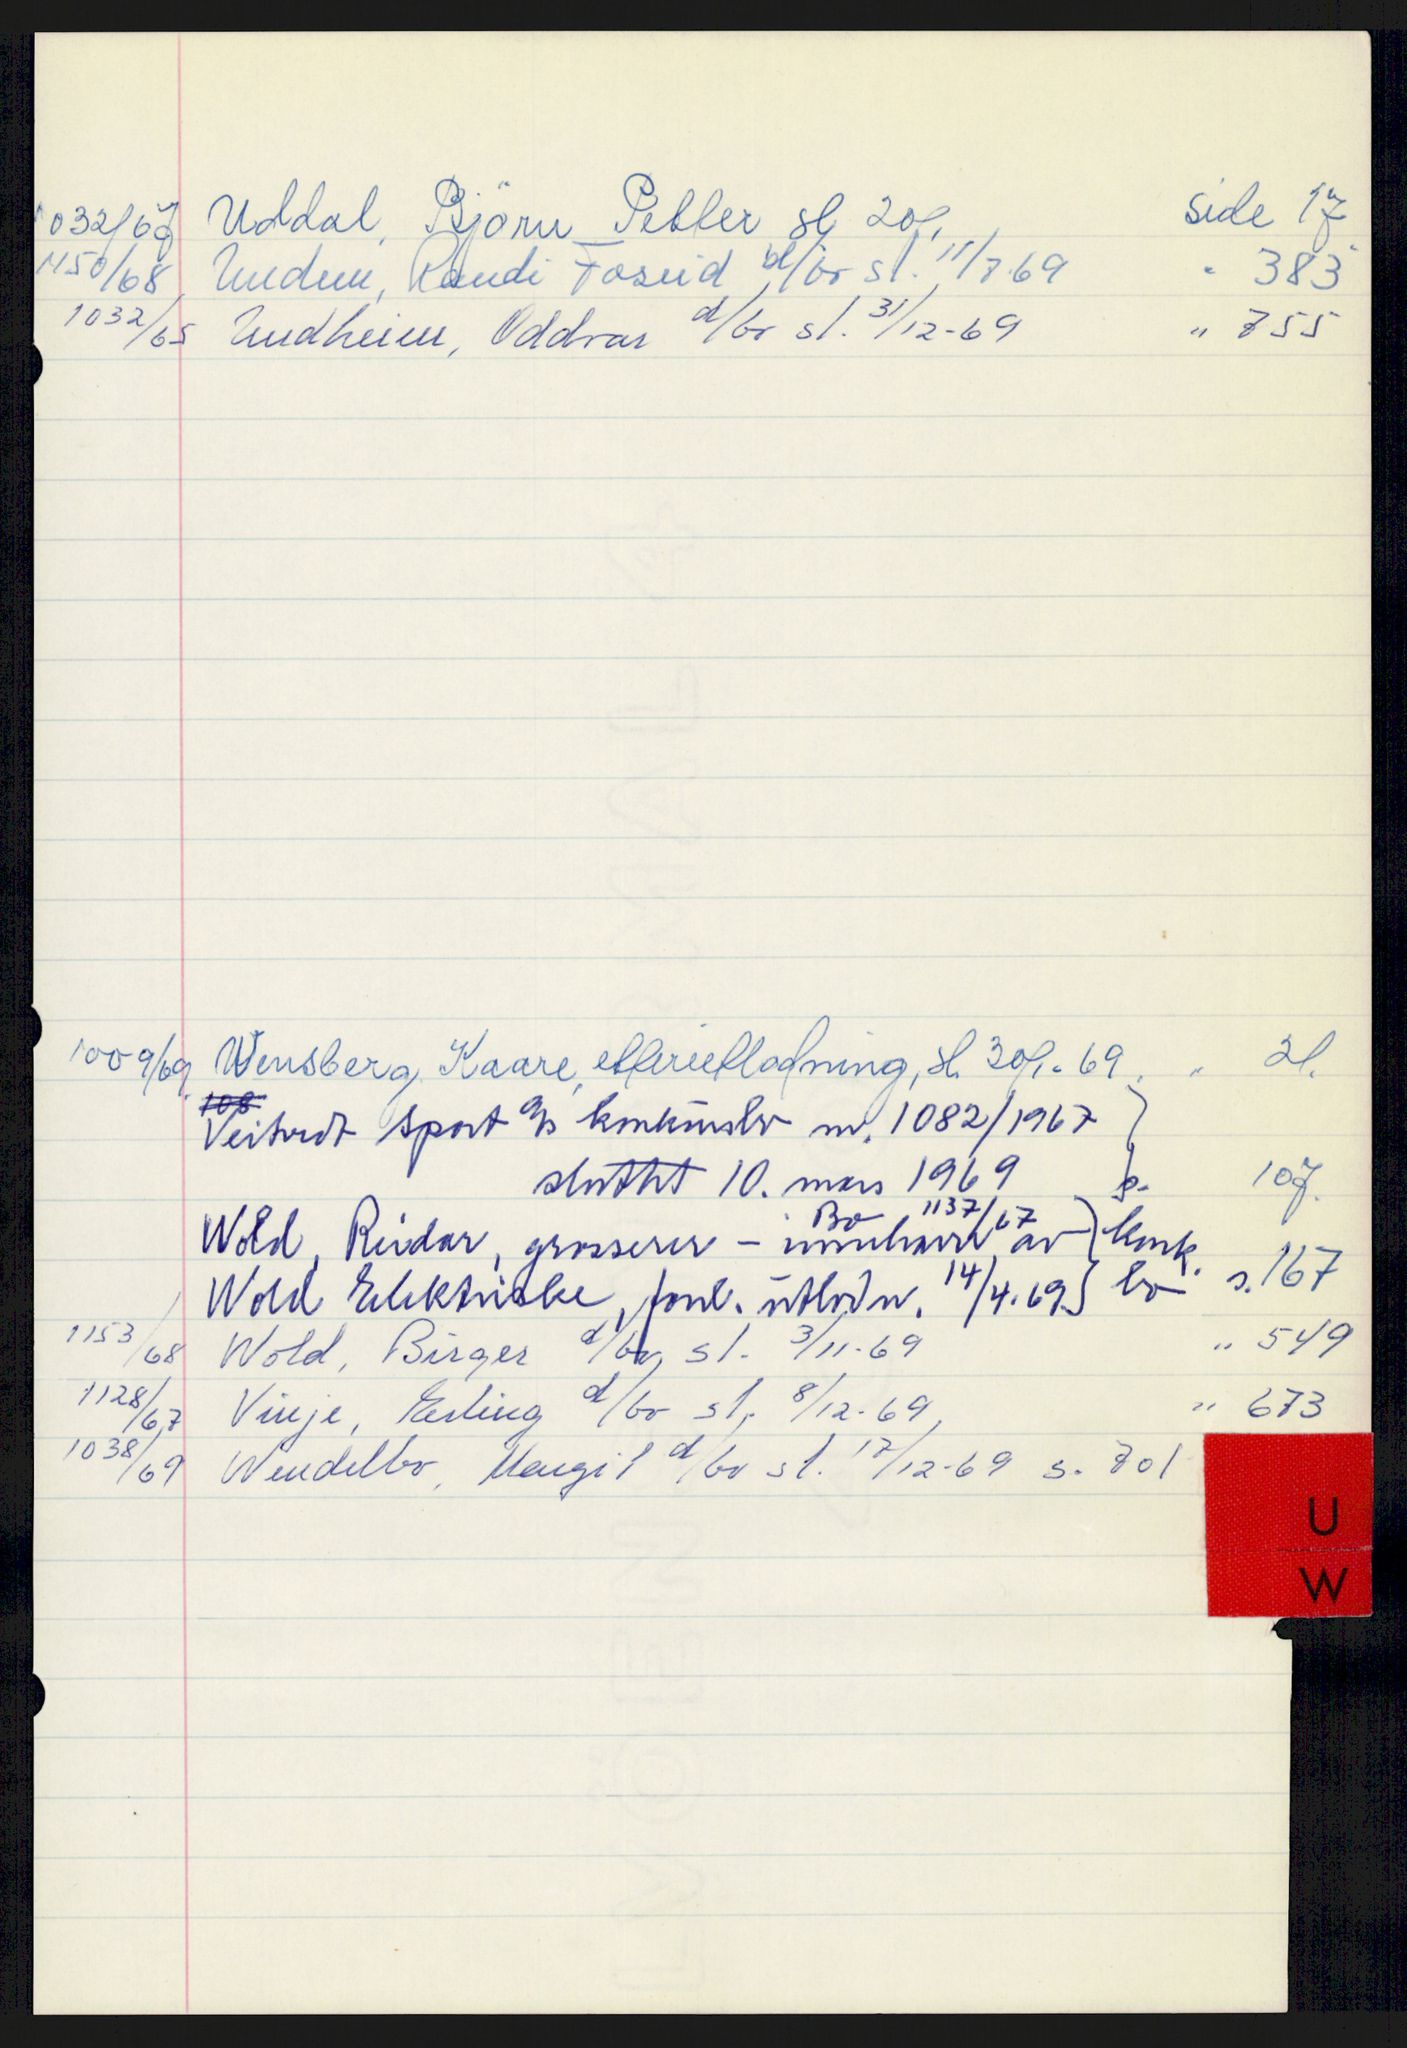 1032/67 Uddal, Björn Petter sl. 20/1 side 17
1150/68 Undem, Randi Foseid d/bo sl. 11/7 69 " 383
1032/65 Undheim, Oddvar d/bo sl. 31/12-69 " 755
1009/69 Wensberg, Kaare, etterutlodning, sl. 30/1-69. " 21.
108
Veitvedt Sport A/S konkursbo nr. 1082/1967 }
sluttet 10. mars 1969 } s. 107.
Bo 1137/67
Wold, Reidar, grosserer - innehaver av } konk.
Wold Elektriske, forel. utlodn. 14/4-69 } bo s. 167
1153/68 Wold, Birger d/bo, sl. 3/11-69 " 549
1128/67 Vinje, Erling d/bo sl. 8/12-69, " 673
1038/69 Wendelbo, Margit d/bo sl. 17/12-69 s. 701
U
W